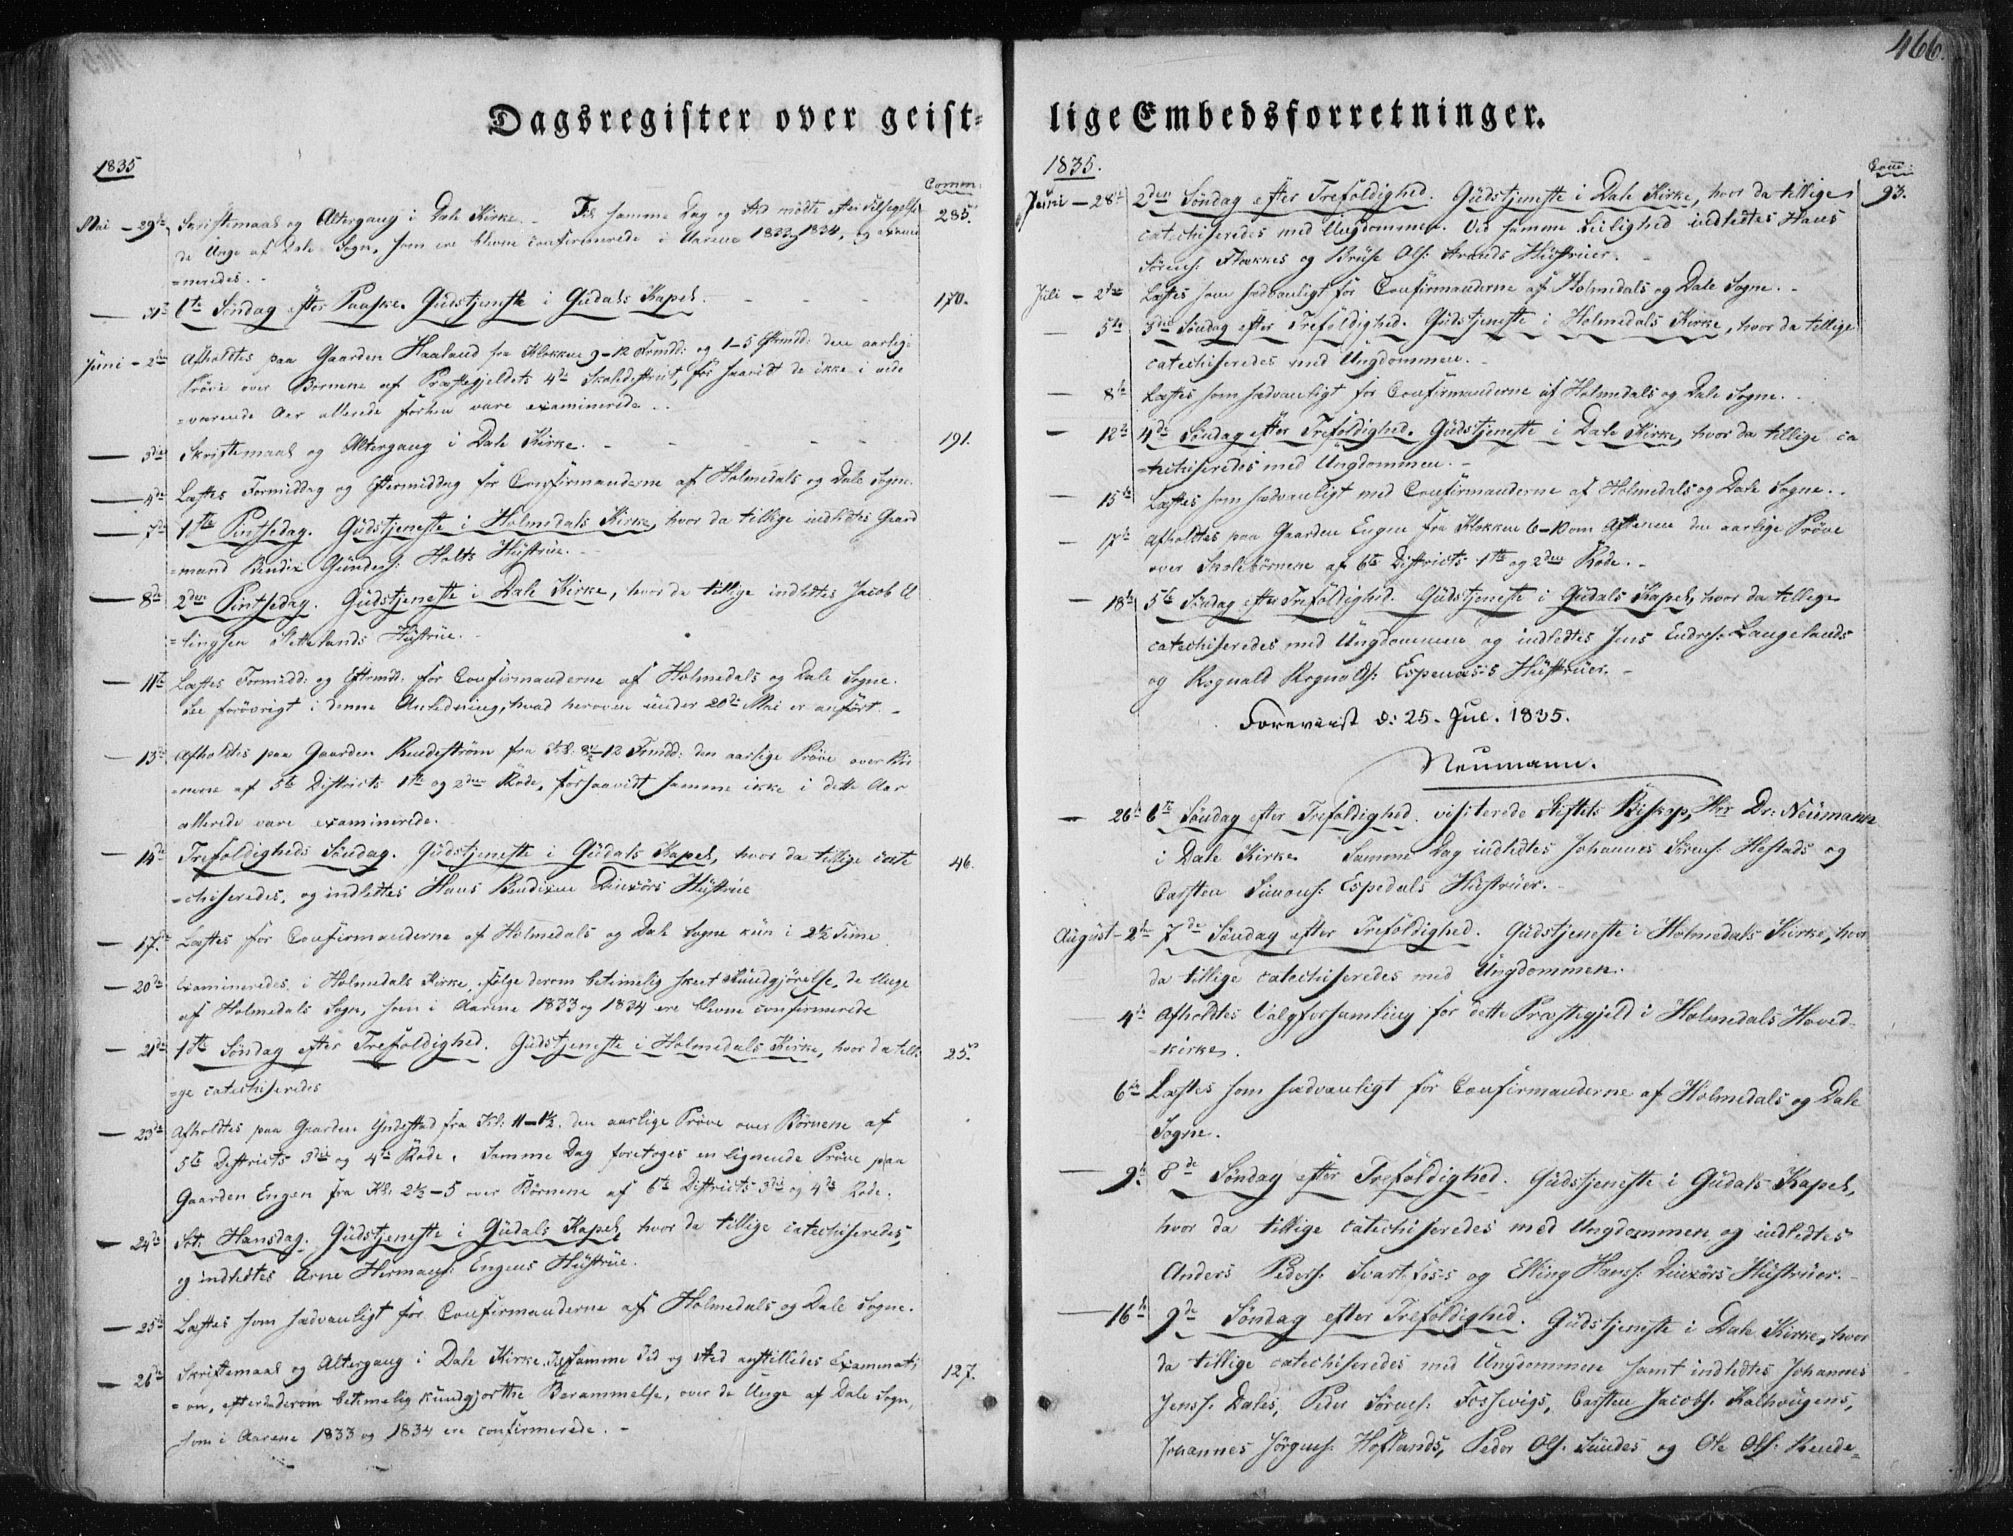 466.
Dagsregister over geist-
1835
Comm:
Mai - 29de Skriftemaal og Altergang i Dale Kirke. - samme Dag og Sted mødte efter Tilsigelse 285.
de Unge af Dale Sogn, som ere blevne confirmerede i Aarene 1833 og 1834, og exami
=neredes. -
- 31te 6te Søndag efter Paaske. Gudstjeneste i Guddals Kapel. - - - - 170.
Juni - 2den Afholdtes paa Gaarden Haaland fra Klokken 9-12 Formd: og 1-5 Eftmdd: den aarlige
Prøve over Børnene af Præstegjeldets 4de Skoledistrict, for saavidt de ikke i nær
=værende Aar allerede forhen vare examinerede. -
- 3die Skriftemaal og Altergang i Dale Kirke. - - - - - 191.
- 4de Læstes Formiddag og Eftermiddag for Confirmanderne af Holmedals og Dale Sogne.
- 7de 1ste Pintsedag. Gudstjeneste i Holmedals Kirke, hvor da tillige indledtes Gaard
=mand Bendix Gunders: Holts Hustrue. -
- 8de 2den Pintsedag. Gudstjeneste i Dale Kirke, hvor da tillige indledtes Jacob El
=lingsen Slettelands Hustrue. -
- 11te Læstes Formidd: og Eftrmdd: for Confirmanderne af Holmedals og Dale Sogne.
See forøvrigt i denne Anledning, hvad heroven under 20de Mai er anført. -
- 13de Afholdtes paa Gaarden Rendestrøm fra Kl: 8½-12 Frmdd: den aarlige Prøve over Bør
=nene af 5te Districts 1ste og 2den Rode, forsaavidt samme ikke i dette Aar
allerede vare examinerede.
- 14de Trefoldigheds Søndag. Gudstjeneste i Guddals Kapel, hvor da tillige cate 46.
=chiseredes, og indledtes Hans Bendixens Hustrue
- 17de Læstes for Confirmanderne af Holmedals og Dale Sogne kun i 2½ Time
- 20de Examineredes i Holmedals Kirke, ifølge derom betimelig skeet Kundgjørelse, de Unge
af Holmedals Sogn, som i Aarene 1833 og 1834 ere blevne confirmerede
- 21de 1ste Søndag efter Trefoldighed. Gudstjeneste i Holmedals Kirke, hvor da tilli 25.
=ge catechiseredes
- 23de Afholdtes paa Gaarden Yndestad fra Kl: 11-1½. den aarlige Prøve over Børnene af
5te Districts 3die og 4de Rode. Samme Dag foretoges en lignende Prøve paa
Gaarden Engen fra Kl: 2½-5 over Børnene af 6te Districts 3die og 4de Rode.
- 24de Sct: Hansdag. Gudstjeneste i Guddals Kapel, hvor da tillige catechiseredes,
og indledtes Arne Hermans: Engens Hustrue.
- 25de Læstes som sædvanligt for Confirmanderne af Holmedals og Dale Sogne.
- 26de Skriftemaal og Altergang i Dale Kirke. samme Tid og Sted anstilledes Examinati 127.
=on, efter derom betimelig kundgjorte Berammelse, over de Unge af Dale Sogn,
som i Aarene 1833 og 1834 ere confirmerede. -
lige Embedsforretninger.
1835.
Com:
Juni - 28de 2den Søndag efter Trefoldighed. Gudstjeneste i Dale Kirke, hvor da tillige 93.
catechiseredes med Ungdommen. Ved samme Leilighed indledtes Hans
Sørens: Flækkes og Brüse Ols: Strands Hustruer. -
Juli - 2den Læstes som sædvanligt for Confirmanderne af Holmedals og Dale Sogne. -
- 5te 3die Søndag efter Trefoldighed. Gudstjeneste i Holmedals Kirke, hvor da tillige
catechiseredes med Ungdommen. -
- 8de Læstes som sædvanligt for Confirmanderne af Holmedals og Dale Sogne. -
- 12te 4de Søndag efter Trefoldighed. Gudstjeneste i Dale Kirke, hvor da tillige ca
=techiseredes med Ungdommen. -
- 15de Læstes som sædvanligt med Confirmanderne af Holmedals og Dale Sogne. -
- 17de Afholdtes paa Gaarden Engen fra Klokken 6-10 om Aftenen den aarlige Prøve
over Skolebørnene af 6te Districts 1ste og 2den Rode. -
- 18de 5te Søndag efter Trefoldighed Gudstjeneste i Guddals Kapel, hvor da tillige
catechiseredes med Ungdommen og indledtes Jens Endres: Langelands
og Rognald Rognalds: Espenæs's Hustruer. -
Foreviist d: 25. Jul. 1835.
Neumann.
- 26de 6te Søndag efter Trefoldighed. visiterede Stiftets Biskop, Hr Dr: Neumann
i Dale Kirke. Samme Dag indledtes Johannes Sørens: Hestads og
Carsten Simons: Espedals Hustruer. -
August - 2den 7de Søndag efter Trefoldighed. Gudstjeneste i Holmedals Kirke, hvor
da tillige catechiseredes med Ungdommen.
4de Afholdtes Valgforsamling for dette Præstegjeld i Holmedals Hoved-
=kirke.
6te Læstes som sædvanligt for Confirmanderne af Holmedals og Dale
Sogne.
- 9de 8de Søndag efter Trefoldighed. Gudstjeneste i Guddals Kapel,
hvor da tillige catechiseredes med Ungdommen og indledtes
Anders Peders: Svartefos's og Elling Hans: Hustruer. -
- 16de 9de Søndag efter Trefoldighed. Gudstjeneste i Dale Kirke, hvor
da tillige catechiseredes med Ungdommen samt indledtes Johannes
Jens: Dales, Peder Sørens: Fossevigs, Carsten Jacobs: Kalhougens,
Johannes Jørgens: Hoflands, Peder Ols: Sundes og Ole Ols: Rende-